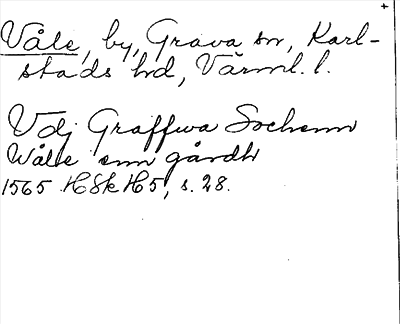 Våle, by, Grava sn, Karl-
stads hd, Värml. l.
Vdj Graffwa Sochenn
Wålle enn gårdh
1565 HSkH5, s. 28.